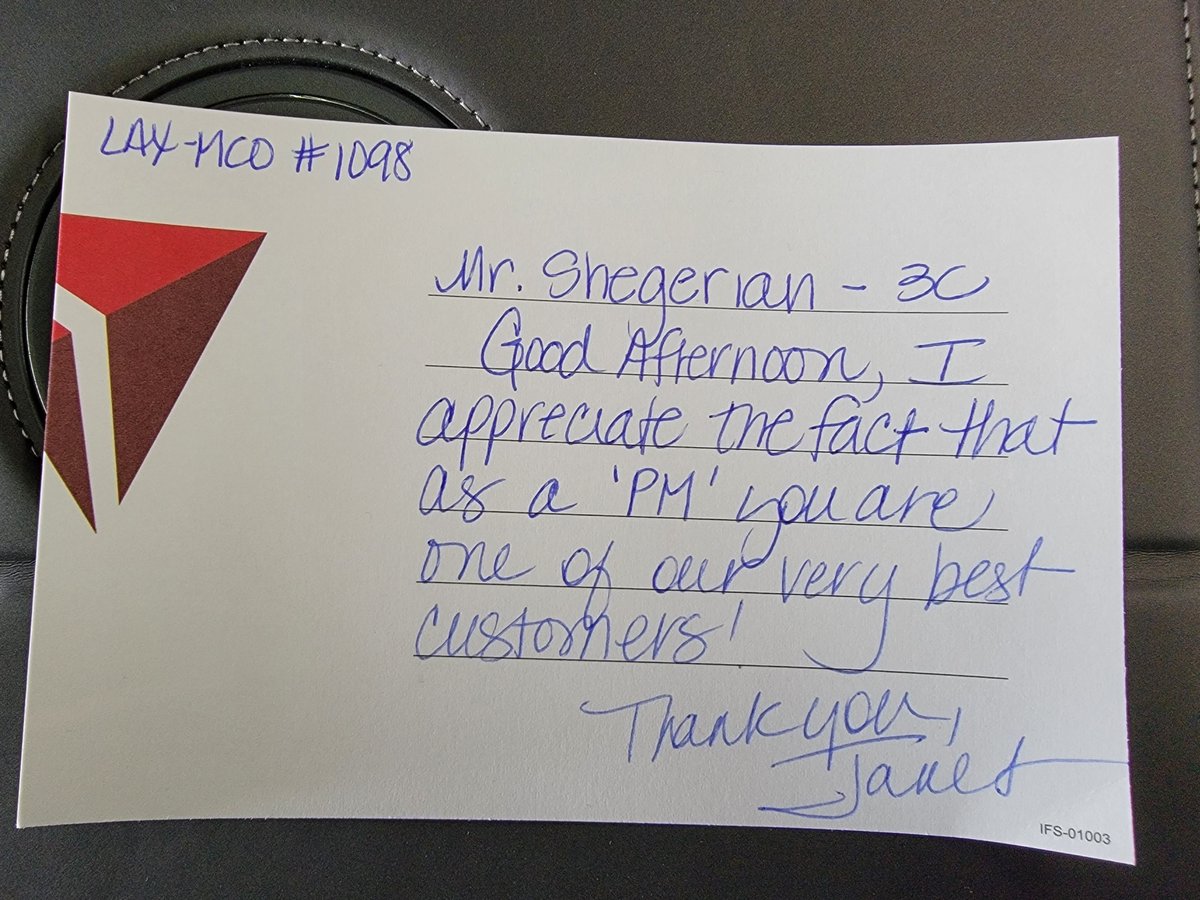 LAX-MCO #1098
Mr. Shegerian - 3C
Good Afternoon, I
appreciate the fact that
as a 'PM' you are
one of our very best
customers!
Thank you,
Janet
IFS-01003